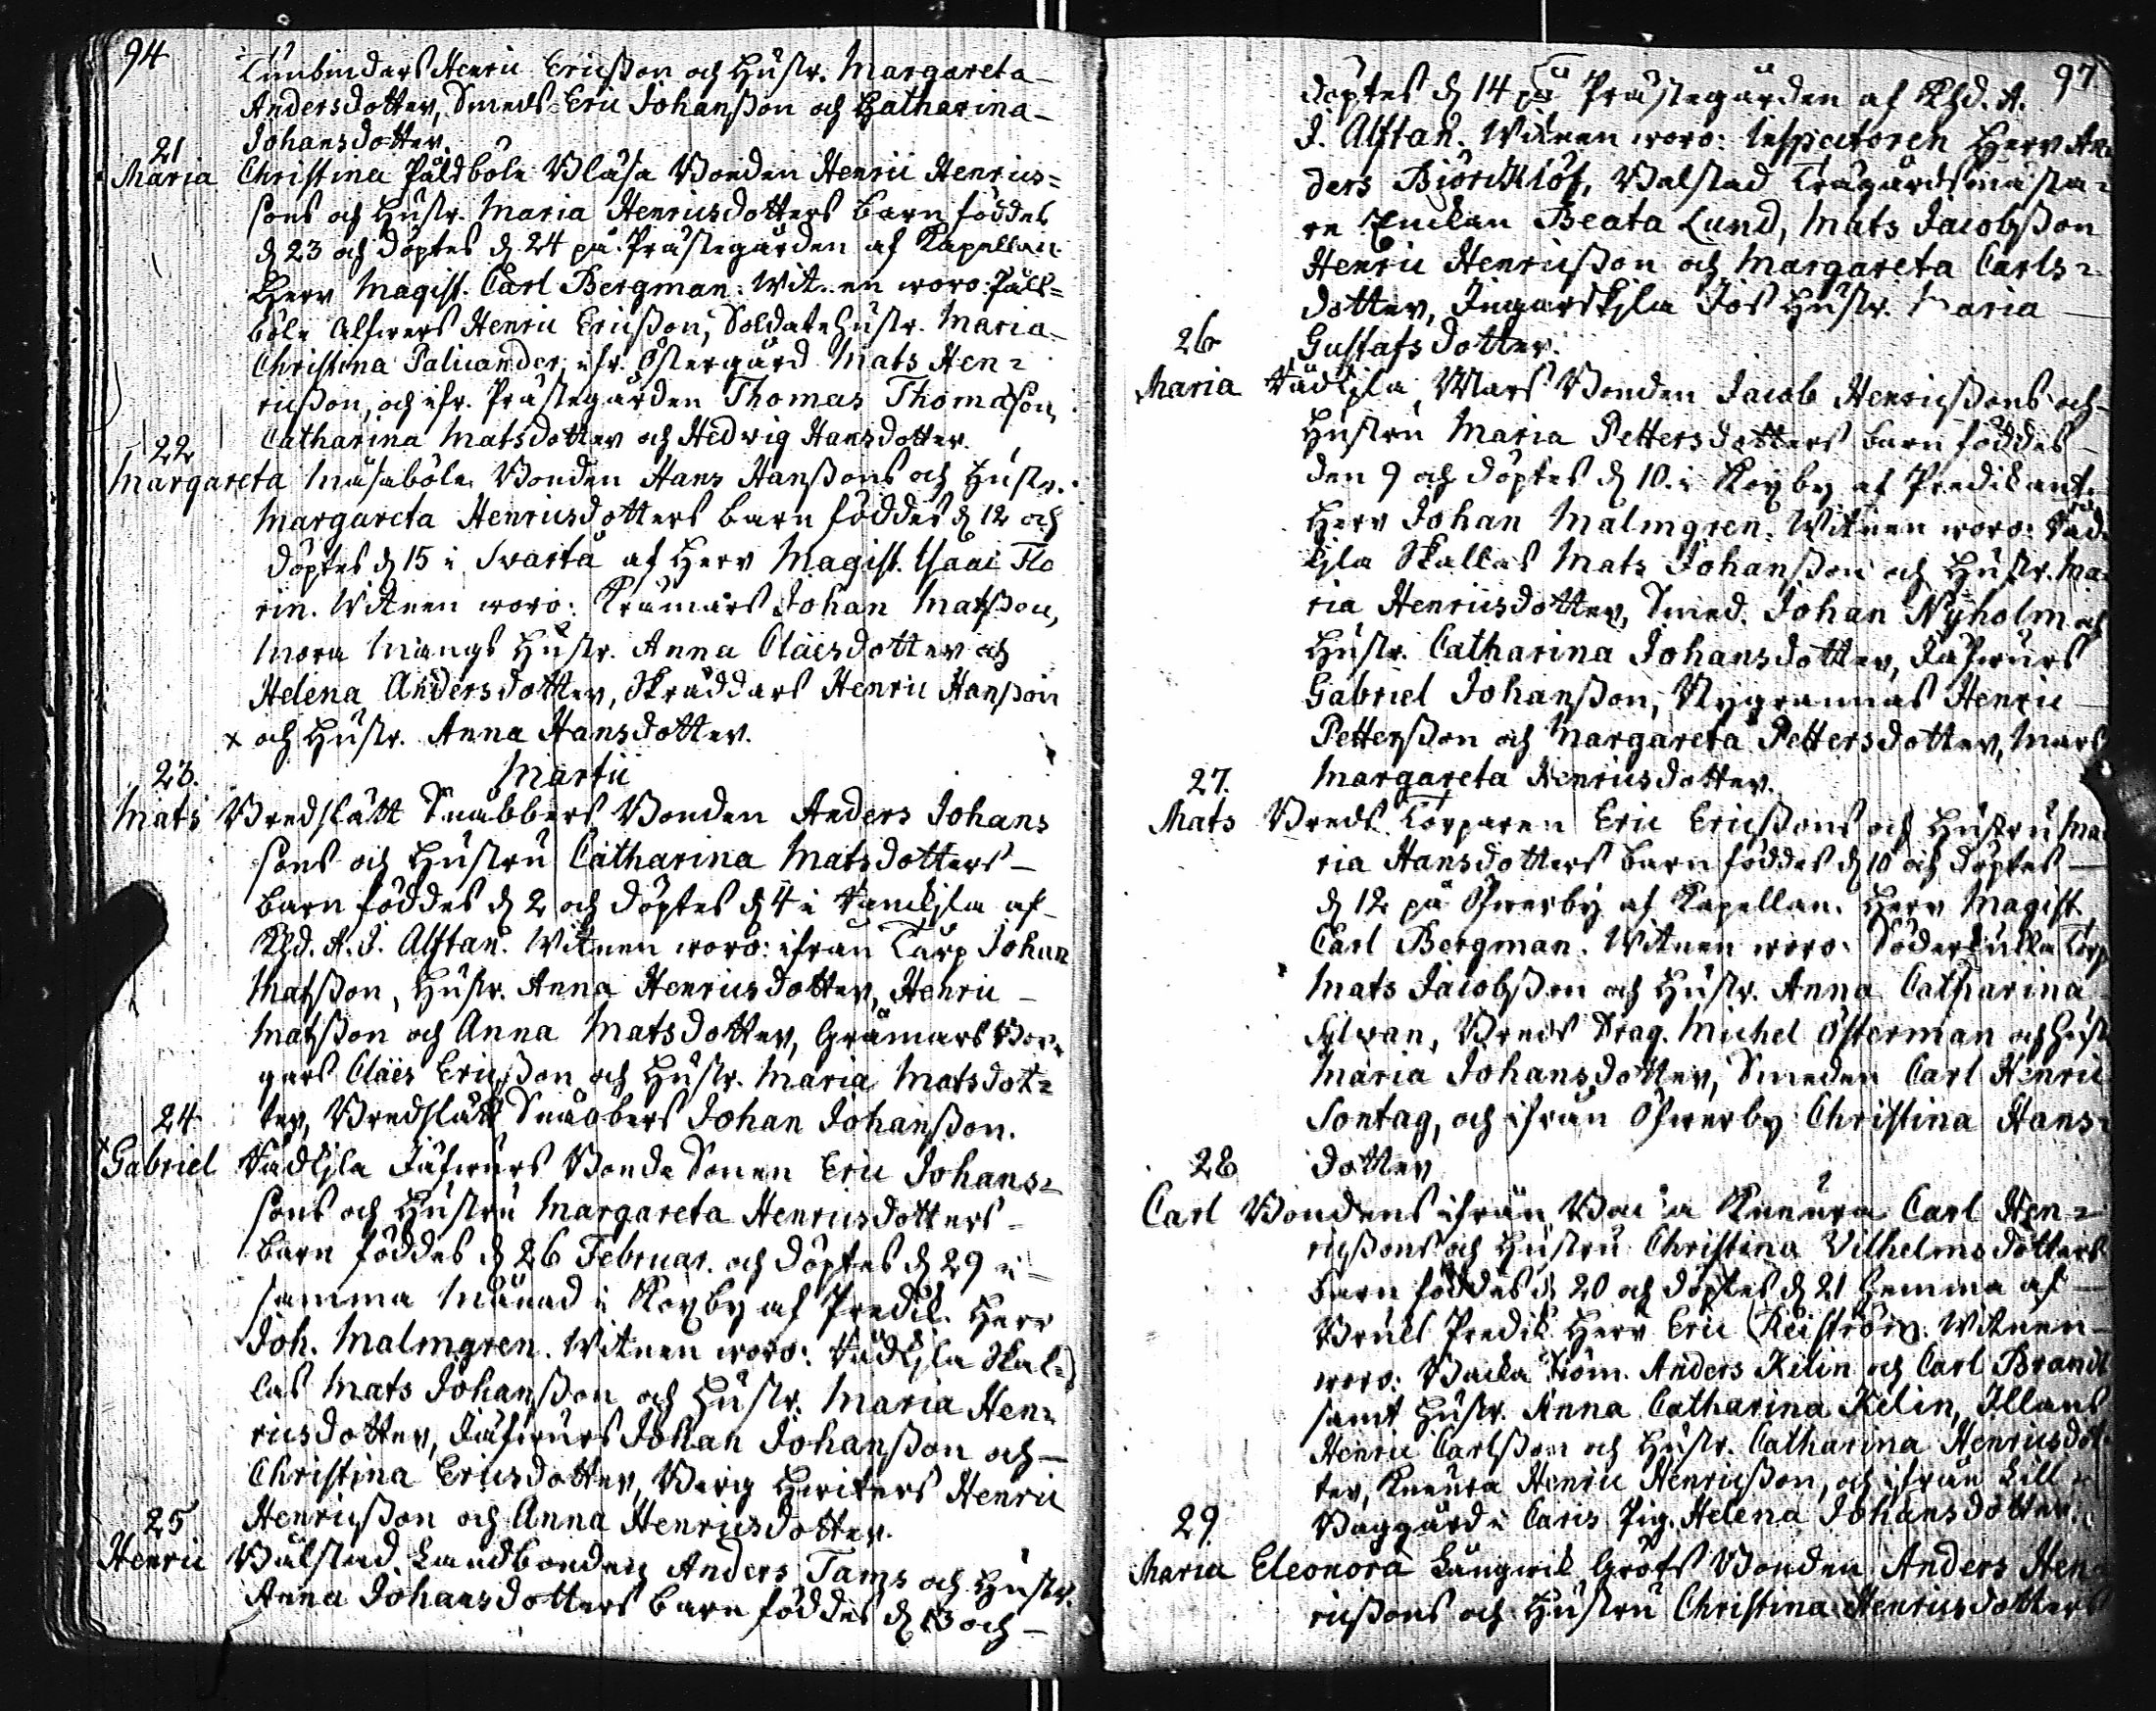 94
Tunbinders Henric Ericsson och Hustr. Margareta
Andersdotter, Smeds Eric Johansson och Catharina
Johansdotter.
21
Maria Christina Påldböle Blåsa Bonden Henric Henrics=
sons och Hustr. Maria Henricsdotters barn föddes
d. 23 och döptes d. 24 på Prästegården af Kapellan
Herr Magist. Carl Bergman. Witnen woro: Påld=
böle Alfwers Henric Ericsson, Soldatehustr. Maria
Christina Palicander, ifr. Östergård Mats Hen=
ricsson, och ifr. Prästegården Thomas Thomasson,
Catharina Matsdotter och Hedvig Hansdotter.
22
Margareta Måsaböle Bonden Hans Hanssons och Hustr.
Margareta Henricsdotters barn föddes d. 12 och
döptes d. 15 i Svartå af Herr Magist. Isaac Flo
rin. Witnen woro: Krämars Johan Matsson,
Mora Mångs Hustr. Anna Claësdotter och
Helena Andersdotter, Skräddars Henric Hansson
x och Hustr. Anna Hansdotter.
23. Martii
Mats Bredslätt Snäbbers Bonden Anders Johans
sons och Hustru Catharina Matsdotters
barn föddes d. 2 och döptes d. 4 i af
Khd. A. J. Alftan. Witnen woro: ifrån Torp Johan
Matsson, Hustr. Anna Henricsdotter, Henric
Matsson och Anna Matsdotter, Gråmars Bor=
gars Claës Ericsson och Hustr. Maria Matsdot=
ter, Bredslätt Snäbbers Johan Johansson.
24
x Gabriel Wädkjla Jäfwers Bonde Sonen Eric Johans=
sons och Hustru Margareta Henricsdotters
barn föddes d. 26 Februar. och döptes d. 29 i
samma Månad i Koxby af Predik. Herr
Joh. Malmgren. Witnen woro: Wädkjla Skal=
las Mats Johansson och Hustr. Maria Hen=
ricsdotter, Jäfwers Johan Johansson och
Christina Ericsdotter, Berg Henric
Henricsson och Anna Henricsdotter.
25
Henric Bålstad Landbonden Anders Tams och Hustr.
Anna Johansdotters barn föddes d. 13 och
97
döptes d. 14 på Prästegården af Khd. A.
J. Alftan. Witnen woro: Inspectoren Herr An=
ders Biörcklöf, Bålstad Trägårdsmästa=
re Enckan Beata Lund, Mats Jacobsson
Henric Henricsson och Margareta Carls=
dotter, Ingarskjla Jös Hustr. Maria
Gustafsdotter.
26
Maria Wädkjla Mars Bonden Jacob Henricssons och
Hustru Maria Pettersdotters barn föddes
den 9 och döptes d. 10. i Koxby af Predikant
Herr Johan Malmgren. Witnen woro: Wäd=
kjla Skallas Mats Johansson och Hustr. Ma=
ria Henricsdotter, Smed. Johan Nyholm och
Hustr. Catharina Johansdotter, Jäfwers
Gabriel Johansson, Nygrannas Henric
Pettersson och Margareta Pettersdotter, Mars
Margareta Henricsdotter.
27.
Mats Breds Torparen Eric Ericssons och Hustru Ma=
ria Hansdotters barn föddes d. 10 och döptes
d. 12 på Öfwerby af Kapellan. Herr Magist.
Carl Bergman. Witnen woro: Söderkulla Torp
Mats Jacobsson och Hustr. Anna Catharina
Sylvan, Breds Drag. Michel Österman och Hust
Maria Johansdotter, Smeden Carl Henric
Sontag, och ifrån Öfwerby Christina Hans=
dotter
28
Carl Bondens ifrån Backa Kneura Carl Hen=
ricssons och Hustru Christina Vilhelmsdotters
barn föddes d. 20 och döptes d. 21 hemma af
Bruks Predik. Herr Eric Reiström. Witnen
woro: Backa Anders Kilin och Carl Brandt
samt Hustr. Anna Catharina Kilin, Illans
Henric Carlsson och Hustr. Catharina Henricsdot=
ter, Kneura Henric Henricsson, och ifrån Lill
Baggård i Caris Pig. Helena Johansdotter.
29.
Maria Eleonora Långwik Gröfs Bonden Anders Hen=
ricssons och Hustru Christina Henricsdotters